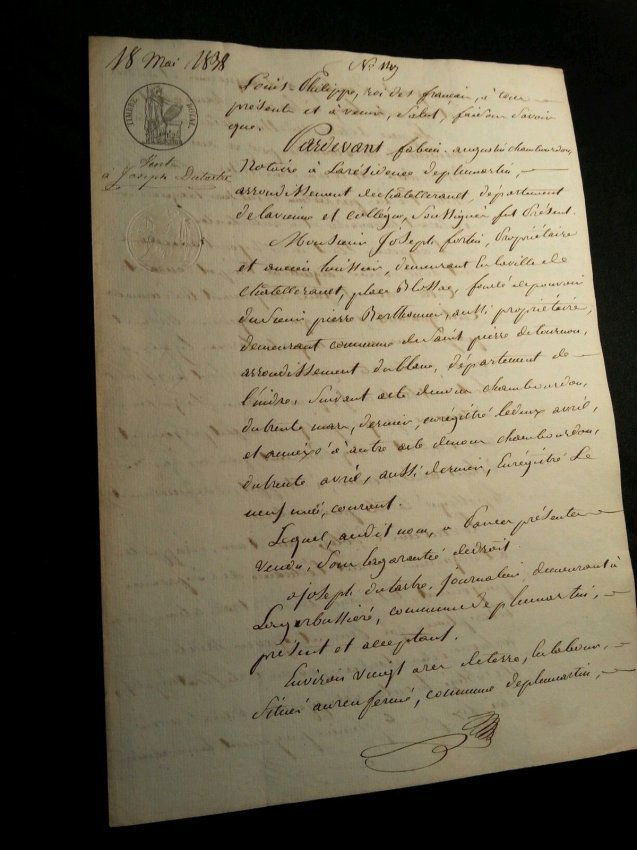 18 Mai 1838
N°
TIMBRE ROYAL
Vente
à Joseph Dutartre
Louis Philippe, roi des français, à tous
présents et à venir, Salut, faisons Savoir
que.
Pardevant fabien augustin chambourdon,
Notaire à La résidence de pleumartin,
arrondissement de chatellerault, département
de la vienne et collègue, Soussignés fut Présent.
Monsieur Joseph fortin, Propriétaire
et ancien huissier, demeurant en la ville de
Chatellerault, place Blossac, fondé de pouvoir
du Sieur pierre Berthomier, aussi propriétaire,
demeurant commune de Saint pierre de tournon,
arrondissement du blanc, département de
l'indre, Suivant acte devant chambourdon,
du trente mars, dernier, enregistré le deux avril,
et annexé à autre acte de nous chambourdon,
du trente avril, aussi dernier, Enrégistré Le
neuf mai, courant.
Lequel, audit nom, a Par ces présentes
vendu, Sous la garantie de droit.
à Joseph dutartre, journalier, demeurant à
commune de pleumartin,
présent et acceptant.
Environ vingt ares de terre, En labour,
Situés au renfermé, commune de pleumartin,